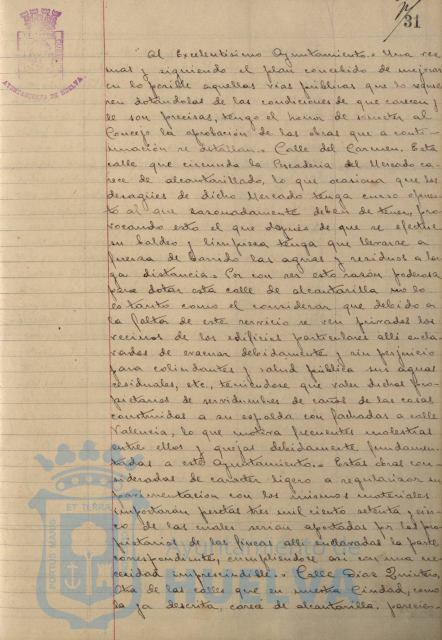 31
AYUNTAMIENTO DE HUELVA
Al Excelentísimo Ayuntamiento = Una vez
mas y siguiendo el plan concebido de mejorar
en lo posible aquellas vias públicas que lo requie
ren dotándolas de las condiciones de que carecen y
le son precisas, tengo el honor de someter al
Concejo la aprobación de las obras que a conti-
nuación se detallan = Calle del Carmen. Esta
calle que circunda la Pescaderia del Mercado ca-
rece de alcantarillado, lo que ocasiona que los
desagües de dicho Mercado tenga curso opues-
to al que razonadamente deben de tener, pro-
vocando esto el que después de que se efectue
su baldeo y limpieza tenga que llevarse a
fuerza de barrido las aguas y residuos a lar
ga distancia = Por con ser esto razón poderosa
para dotar esta calle de alcantarilla no lo
es tanto como el considerar que debido a
la falta de este servicio se ven privados los
vecinos de los edificios particulares alli encla-
vados de evacuar debidamente y sin perjuicio
para colindantes y salud pública sus aguas
residuales, etc, teniendose que valer dichos pro-
pietarios de servidumbres de caños de las casas
construidas a su espalda con fachadas a calle
Valencia, lo que motiva frecuentes molestias
entre ellos y quejas debidamente fundamen-
tadas a este Ayuntamiento = Estas obras con-
sideradas de caracter ligero a regularizar su
pavimentacion con los mismos materiales
importarán pesetas tres mil ciento setenta y cin-
co de las cuales serian aportadas por los pro-
pietarios de las fincas alli enclavadas la parte
correspondiente, cumpliendose asi con una ne-
cesidad imprescindible = Calle Diaz Quintero.
Otra de las calles que en nuestra Ciudad, como
la ya descrita, carece de alcantarilla, parecien-
PORTUS MARIS
ET TERRAE
Ayuntamiento de
HUELVA